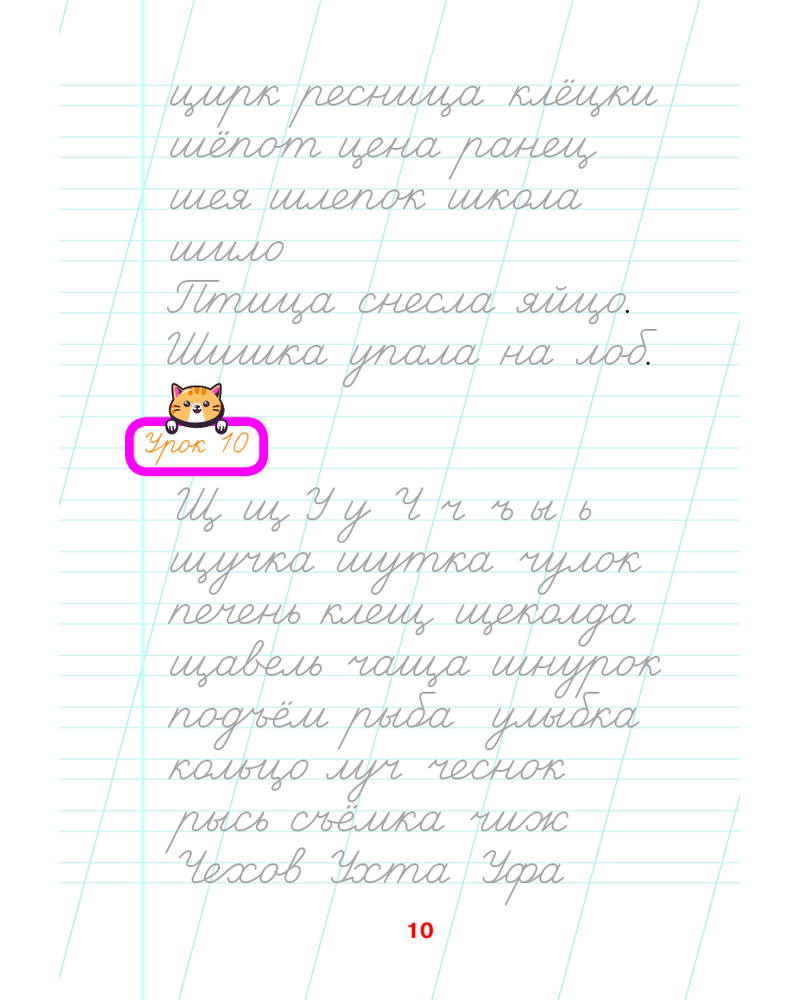 цирк ресница клёцки
шёпот цена ранец
шея шлепок школа
шило
Птица снесла яйцо.
Шишка упала на лоб.
Урок 10
Щ щ У у Ч ч ъ ы ь
щучка шутка чулок
печень клещ щеколда
щавель чаща шнурок
подъём рыба улыбка
кольцо луч чеснок
рысь съёмка чиж
Чехов Ухта Уфа
10